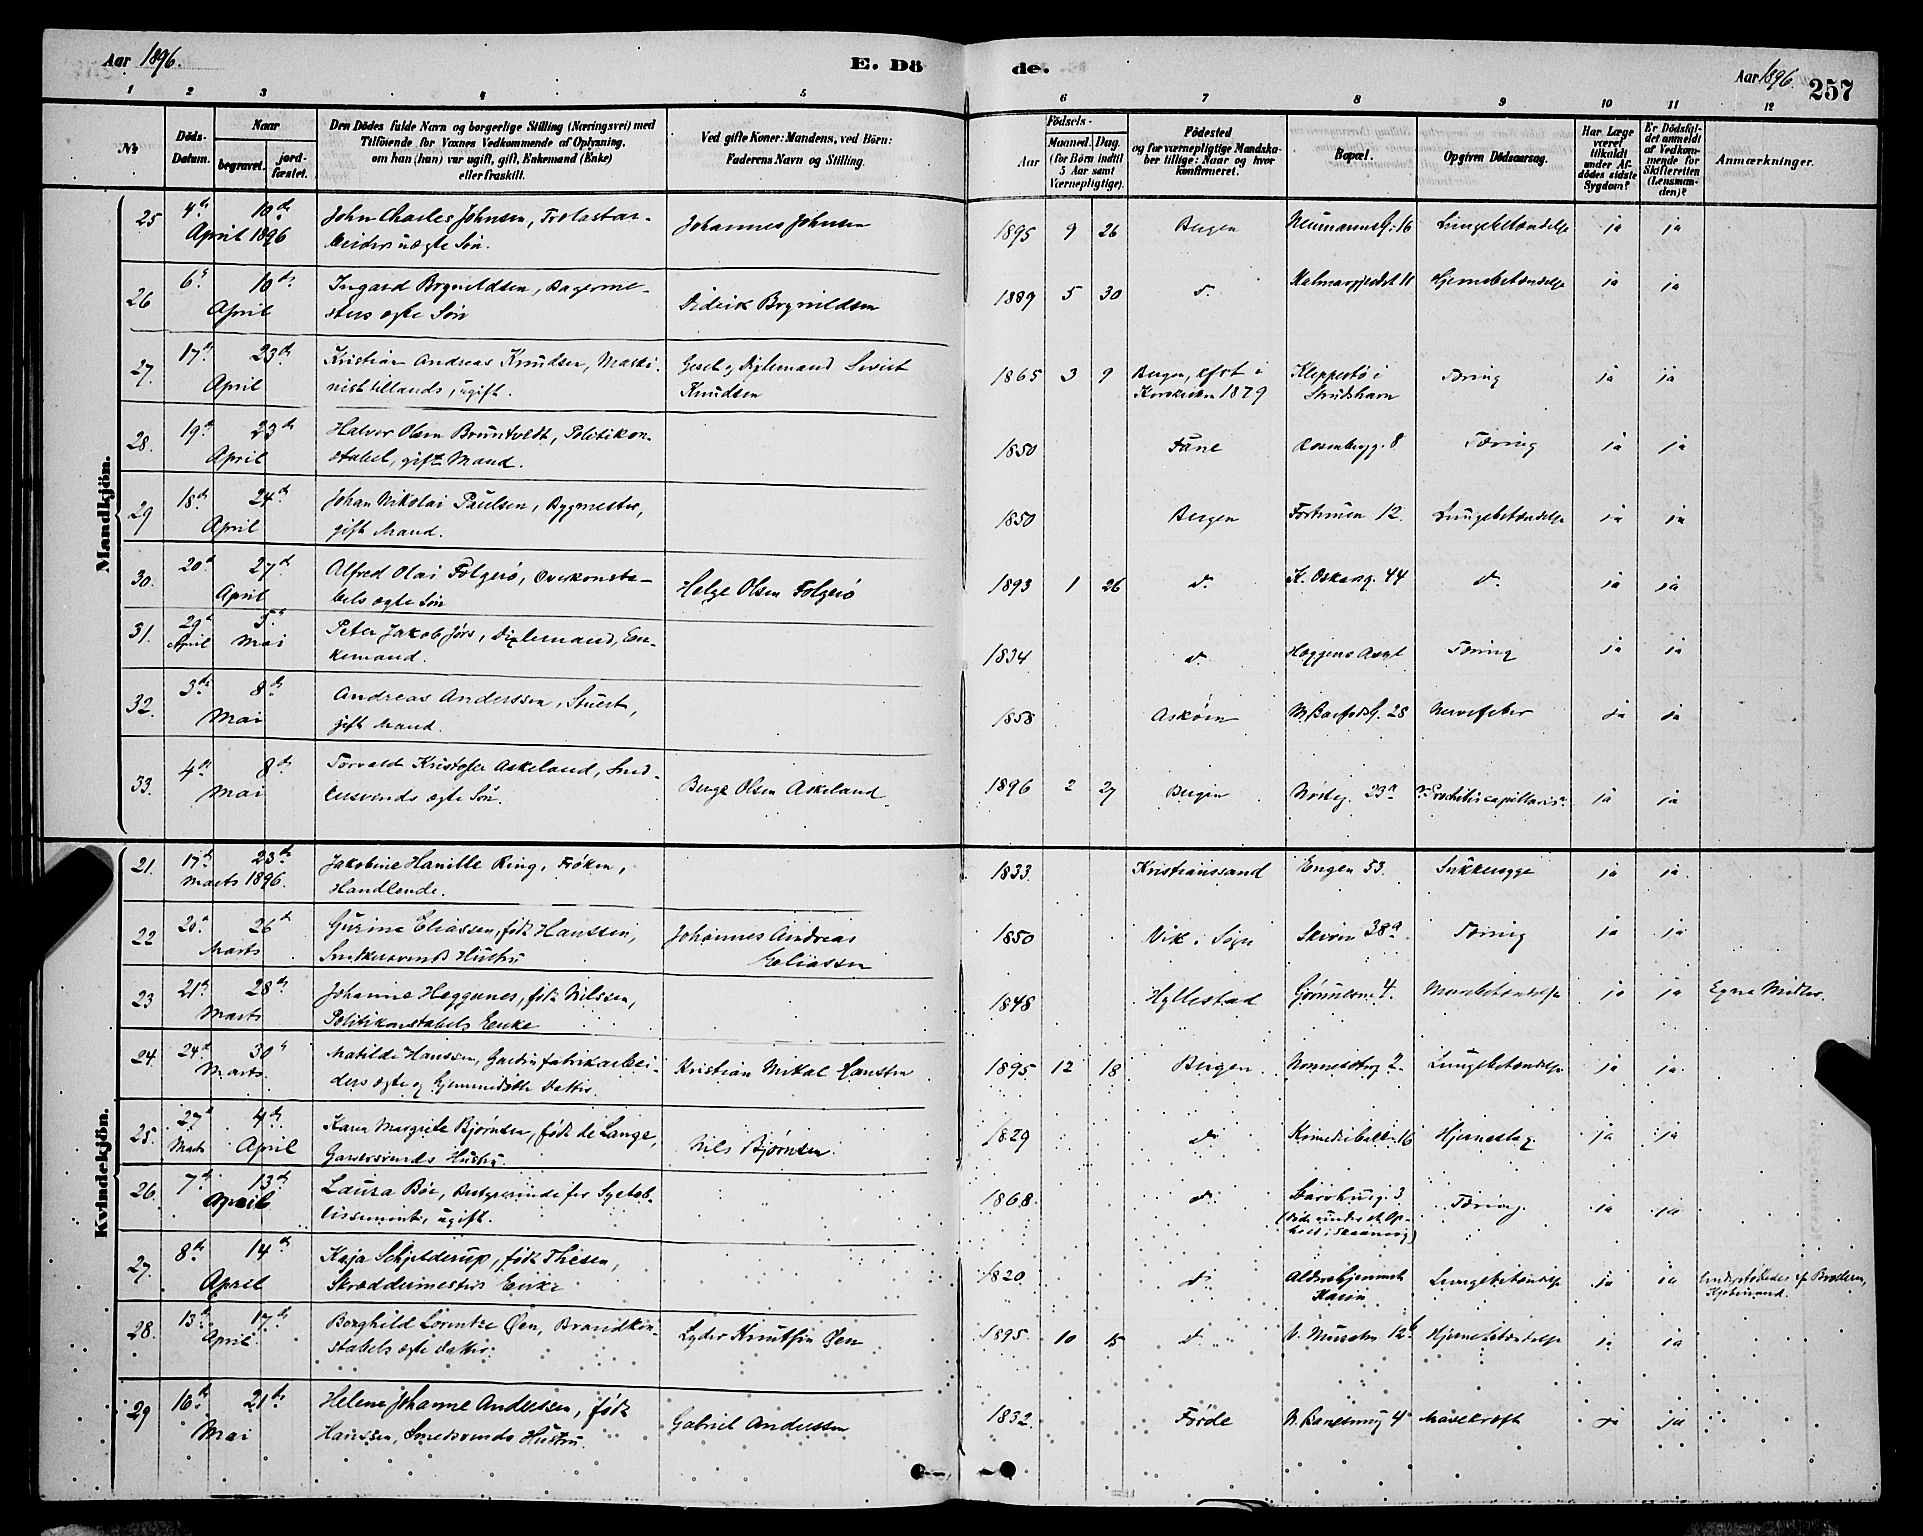 Aar 1896.
E. Dö
de.
Aar 1896
257
1 2 3 4 5 6 7 8 9 10 11 12
No
Döds-Datum.
Naar
begravet.
jordfæstet.
Den Dödes fulde Navn og borgerlige Stilling (Næringsvei) med
Tilföiende for Voxnes Vedkommende af Oplysning,
om han (hun) var ugift, gift, Enkemand (Enke)
eller fraskilt.
Ved gifte Koner: Mandens, ved Börn:
Faderens Navn og Stilling.
Födsels-
Aar
Maaned. Dag.
(for Börn indtil
5 Aar samt
Værnepligtige).
Födested
og for værnepligtige Mandska-
ber tillige: Naar og hvor
konfirmeret.
Bopæl.
Opgiven Dödsaarsag.
Har Læge
været
tilkaldt
under Af-
dödes sidste
Sygdom?
Er Dödsfal-
det anmeldt
af Vedkom-
mende for
Skifteretten
(Lensman-
den)?
Anmærkninger.
Mandkjön.
25 4de 10de John Charles Johnsen, Johannes Johnsen 1895 9 26 Bergen Neumannsg. 16 Lungebetændelse ja ja
April 1896 uægte Søn.
26 6te 10de Ingard Brynildsen, Bagerme- Didrik Brynildsen 1889 5 30 do. Kalmargjerdet 11 Hjernebetændelse ja ja
April sters ægte Søn
27. 17de 23de Kristian Andreas Knudsen, Maski- 1865 3 9 Bergen, kfrt i Kleppestø i Tæring ja ja
April nist tillands, ugift. Knudsen Korskirken 1879 Strudshavn
28. 19de 23de Halvor Olsen Bruntveldt, Politikon- 1850 Fane Rosenbergg. 8 Tæring ja ja
April stabel, gift Mand.
29 18de 24de Johan Nikolai Paulsen, Bygmester, 1850 Bergen Fortunen 12. Lungebetændelse ja ja
April gift Mand.
30. 20de 27de Alfred Olai Folgerø, Overkonsta- Helge Olsen Folgerø 1893 1 26 do. K. Oskarsg. 44 do. ja ja
April bels ægte Søn
31. 29de 5te Peter Jakob Jørs, Bixlemand, En- 1834 do. Hoggens Asyl Tæring ja ja
April Mai kemand.
32. 3die 8de Andreas Anderssen, Stuert, 1858 Askøen 28 Nervefeber ja ja
Mai gift Mand.
33. 4de 8de Torvald Kristofer Askeland, Sned- Berge Olsen Askeland 1896 2 27 Bergen Nösteg. 23a ja ja
Mai kersvends ægte Søn.
Kvindekjön.
21. 17de 23de Jakobine Hanille Ring, Frøken, 1833 Kristianssand Engen 53. Sukkersyge ja ja
Marts 1896. Handlende.
22 20de 26de Gurine Eliassen, født Hanssen, Johannes Andreas 1850 Vik i Sogn Skiven 38a Tæring ja ja
Marts Snedkersvends Hustru Eliassen
23 21de 28de Johanne Heggenes, født Nilssen, 1848 Hyllestad 4. Mavebetændelse ja ja Egne Midler.
Marts Politikonstabels Enke
24. 24de 30te Matilde Hanssen, Gardinfabrikarbei- Kristian Mikal Hanssen 1895 12 18 Bergen Nonnesteg 2 Lungebetændelse ja ja
Marts ders ægte og hjemmedøbte Datter.
25. 27de 4de Karen Margrete Bjørnsen, født de Lange, Nils Bjørnsen 1829 do. 16 Hjerneslag ja ja
Marts April Garversvends Hustru.
26. 7de 13de Laura Bøe, Bestyrerinde for Syetab- 1868. do. 3 Tæring ja ja
April lissement, ugift. (døde under et Op-
hold i Skaanevig)
27. 8de 14de Kaja Schjelderup, født Thesen, 1820 do. Aldershjemmet Lungebetændelse ja ja Understøttedes af Broderen,
April Skræddermesters Enke Kjøbmand.
28. 13de 17de Borghild Lorentze Øen, Brandkon- Lyder Knutsen Øen 1895 10 15 do. V. Muralm. 12b Hjernebetændelse ja ja
April stabels ægte Datter.
29 16de 21de Helene Johanne Anderssen, født Gabriel Anderssen 1832. Førde 4 Mavekræft ja ja
Mai Hanssen, Smedsvends Hustru.